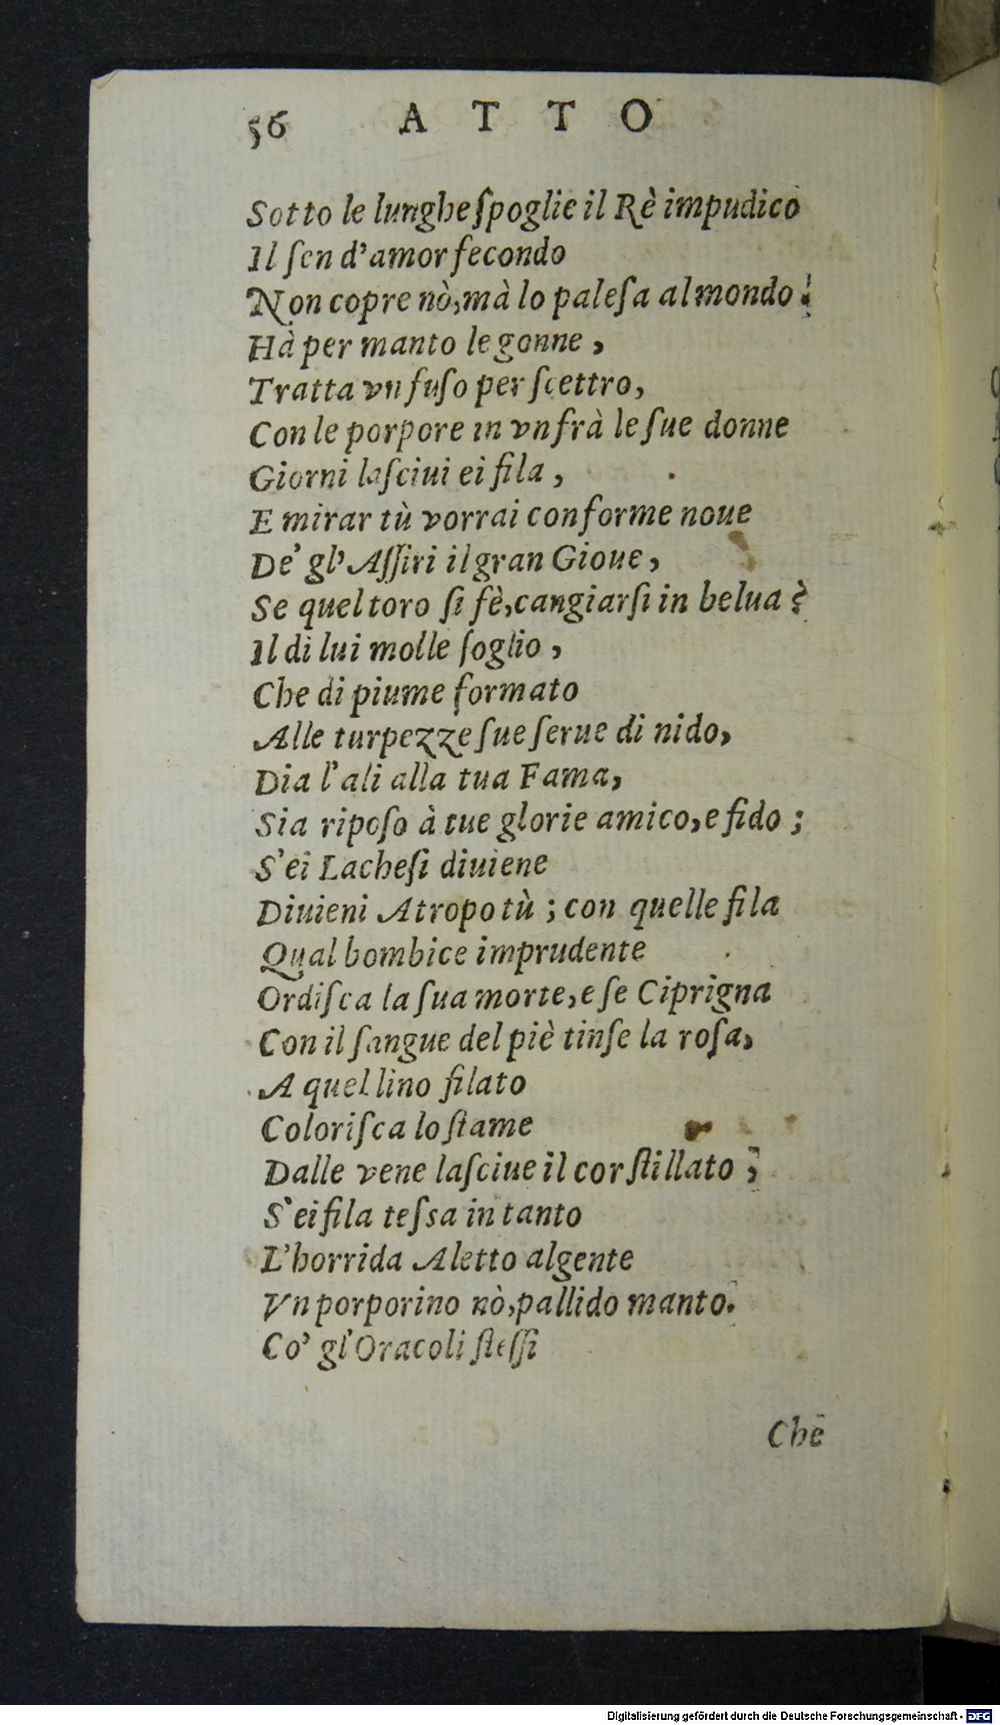 56 ATTO
Sotto le lunghe ſpoglie il Rè impudico
Il ſen d'amor fecondo
Non copre nò, mà lo paleſa al mondo!
Hà per manto le gonne,
Tratta vn fuſo per ſcettro,
Con le porpore in vn frà le ſue donne
Giorni laſciui ei fila,
E mirar tù vorrai conforme noue
De' gl'Aſſiri il gran Gioue,
Se quel toro ſi fè, cangiarſi in belua?
Il di lui molle ſoglio,
Che di piume formato
Alle turpezze ſue ſerue di nido,
Dia l'ali alla tua Fama,
Sia ripoſo à tue glorie amico, e fido;
S'ei Lacheſi diuiene
Diuieni Atropo tù; con quelle fila
Qual bombice imprudente
Ordiſca la ſua morte, e ſe Ciprigna
Con il ſangue del piè tinſe la roſa,
A quel lino filato
Coloriſca lo ſtame
Dalle vene laſciue il cor ſtillato;
S'ei fila teſsa in tanto
L'horrida Aletto algente
Vn porporino nò, pallido manto.
Co' gl'Oracoli ſteſſi
Che
Digitalisierung gefördert durch die Deutsche Forschungsgemeinschaft - DFG